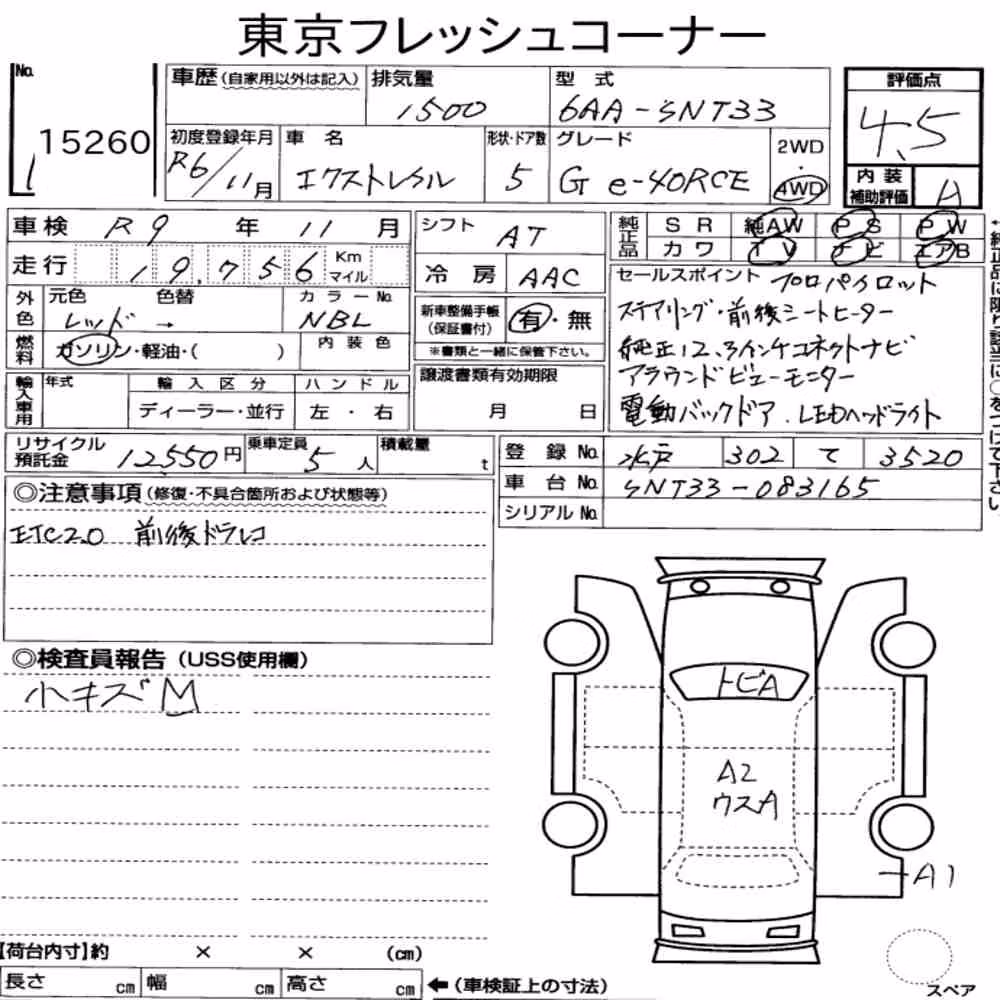 東京フレッシュコーナー
No. 15260
車歴(自家用以外は記入)
排気量 1500
型式 6AA-SNT33
評価点 4.5
内装補助評価 A
初度登録年月 R6/11月
車名 エクストレイル
形状・ドア数 5
グレード G e-4ORCE
2WD・4WD
車検 R9年11月
シフト AT
純正品 SR 純AW PS PW
カワ TV ナビ エアB
走行 19,756 Km マイル
冷房 AAC
セールスポイント プロパイロット
ステアリング・前後シートヒーター
純正12.3インチコネクトナビ
アラウンドビューモニター
電動バックドア.LEDヘッドライト
外色 元色 レッド → 色替 カラーNo. NBL
新車整備手帳(保証書付) 有・無
※書類と一緒に保管下さい。
燃料 ガソリン・軽油・( ) 内装色
輸入車用 年式 輸入区分 ハンドル
ディーラー・並行 左・右
譲渡書類有効期限
月 日
リサイクル預託金 12,550円
乗車定員 5人
積載量 t
登録No. 水戸 302 て 3520
車台No. SNT33-083165
シリアルNo.
◎注意事項(修復・不具合箇所および状態等)
ETC2.0 前後ドラレコ
◎検査員報告(USS使用欄)
小キズM
トビA
A2
ウスA
A1
【荷台内寸】約 × × (cm)
長さ cm 幅 cm 高さ cm ←(車検証上の寸法)
スペア